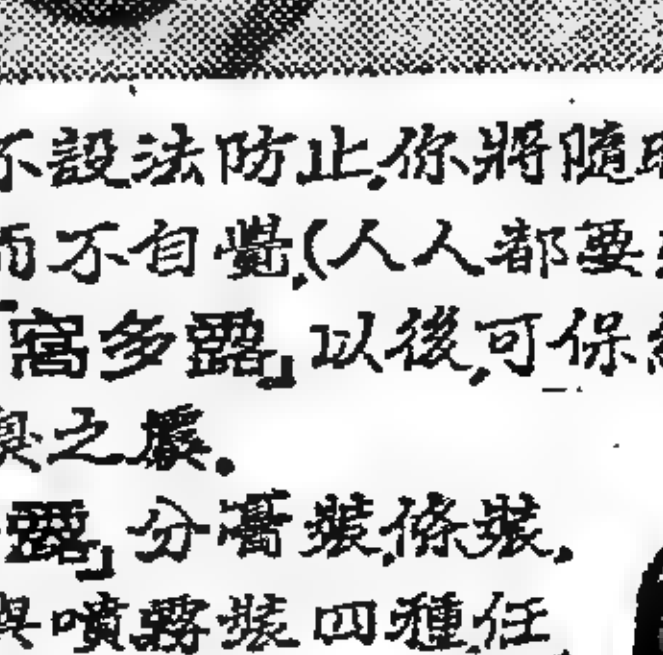 不設法防止,你將隨
而不自覺,(人人都要
「窩多露」以後,可保
臭之
露」分 裝,條裝,
與噴霧裝四種,任